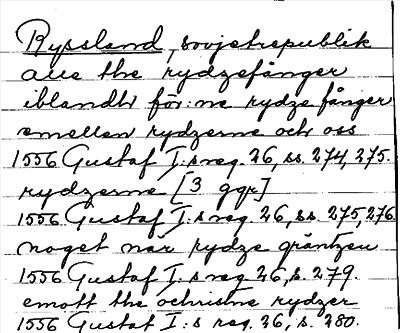 Ryssland, sovjetrepublik
aue the rydzefånger
iblandh för:ne rydze fånger
emellen rydzerne och oss
1556 Gustaf I:s reg. 26, ss. 274, 275.
rydzerne [3 ggr]
1556 Gustaf I:s reg. 26, s.s. 275, 276.
noget når rydze gräntzen
1556 Gustaf I:s reg. 26, s. 279.
emott the ochristne rydzer
1556 Gustaf I:s reg. 26, s. 280.